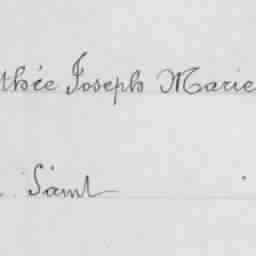 thée Joseph Marie
Saint